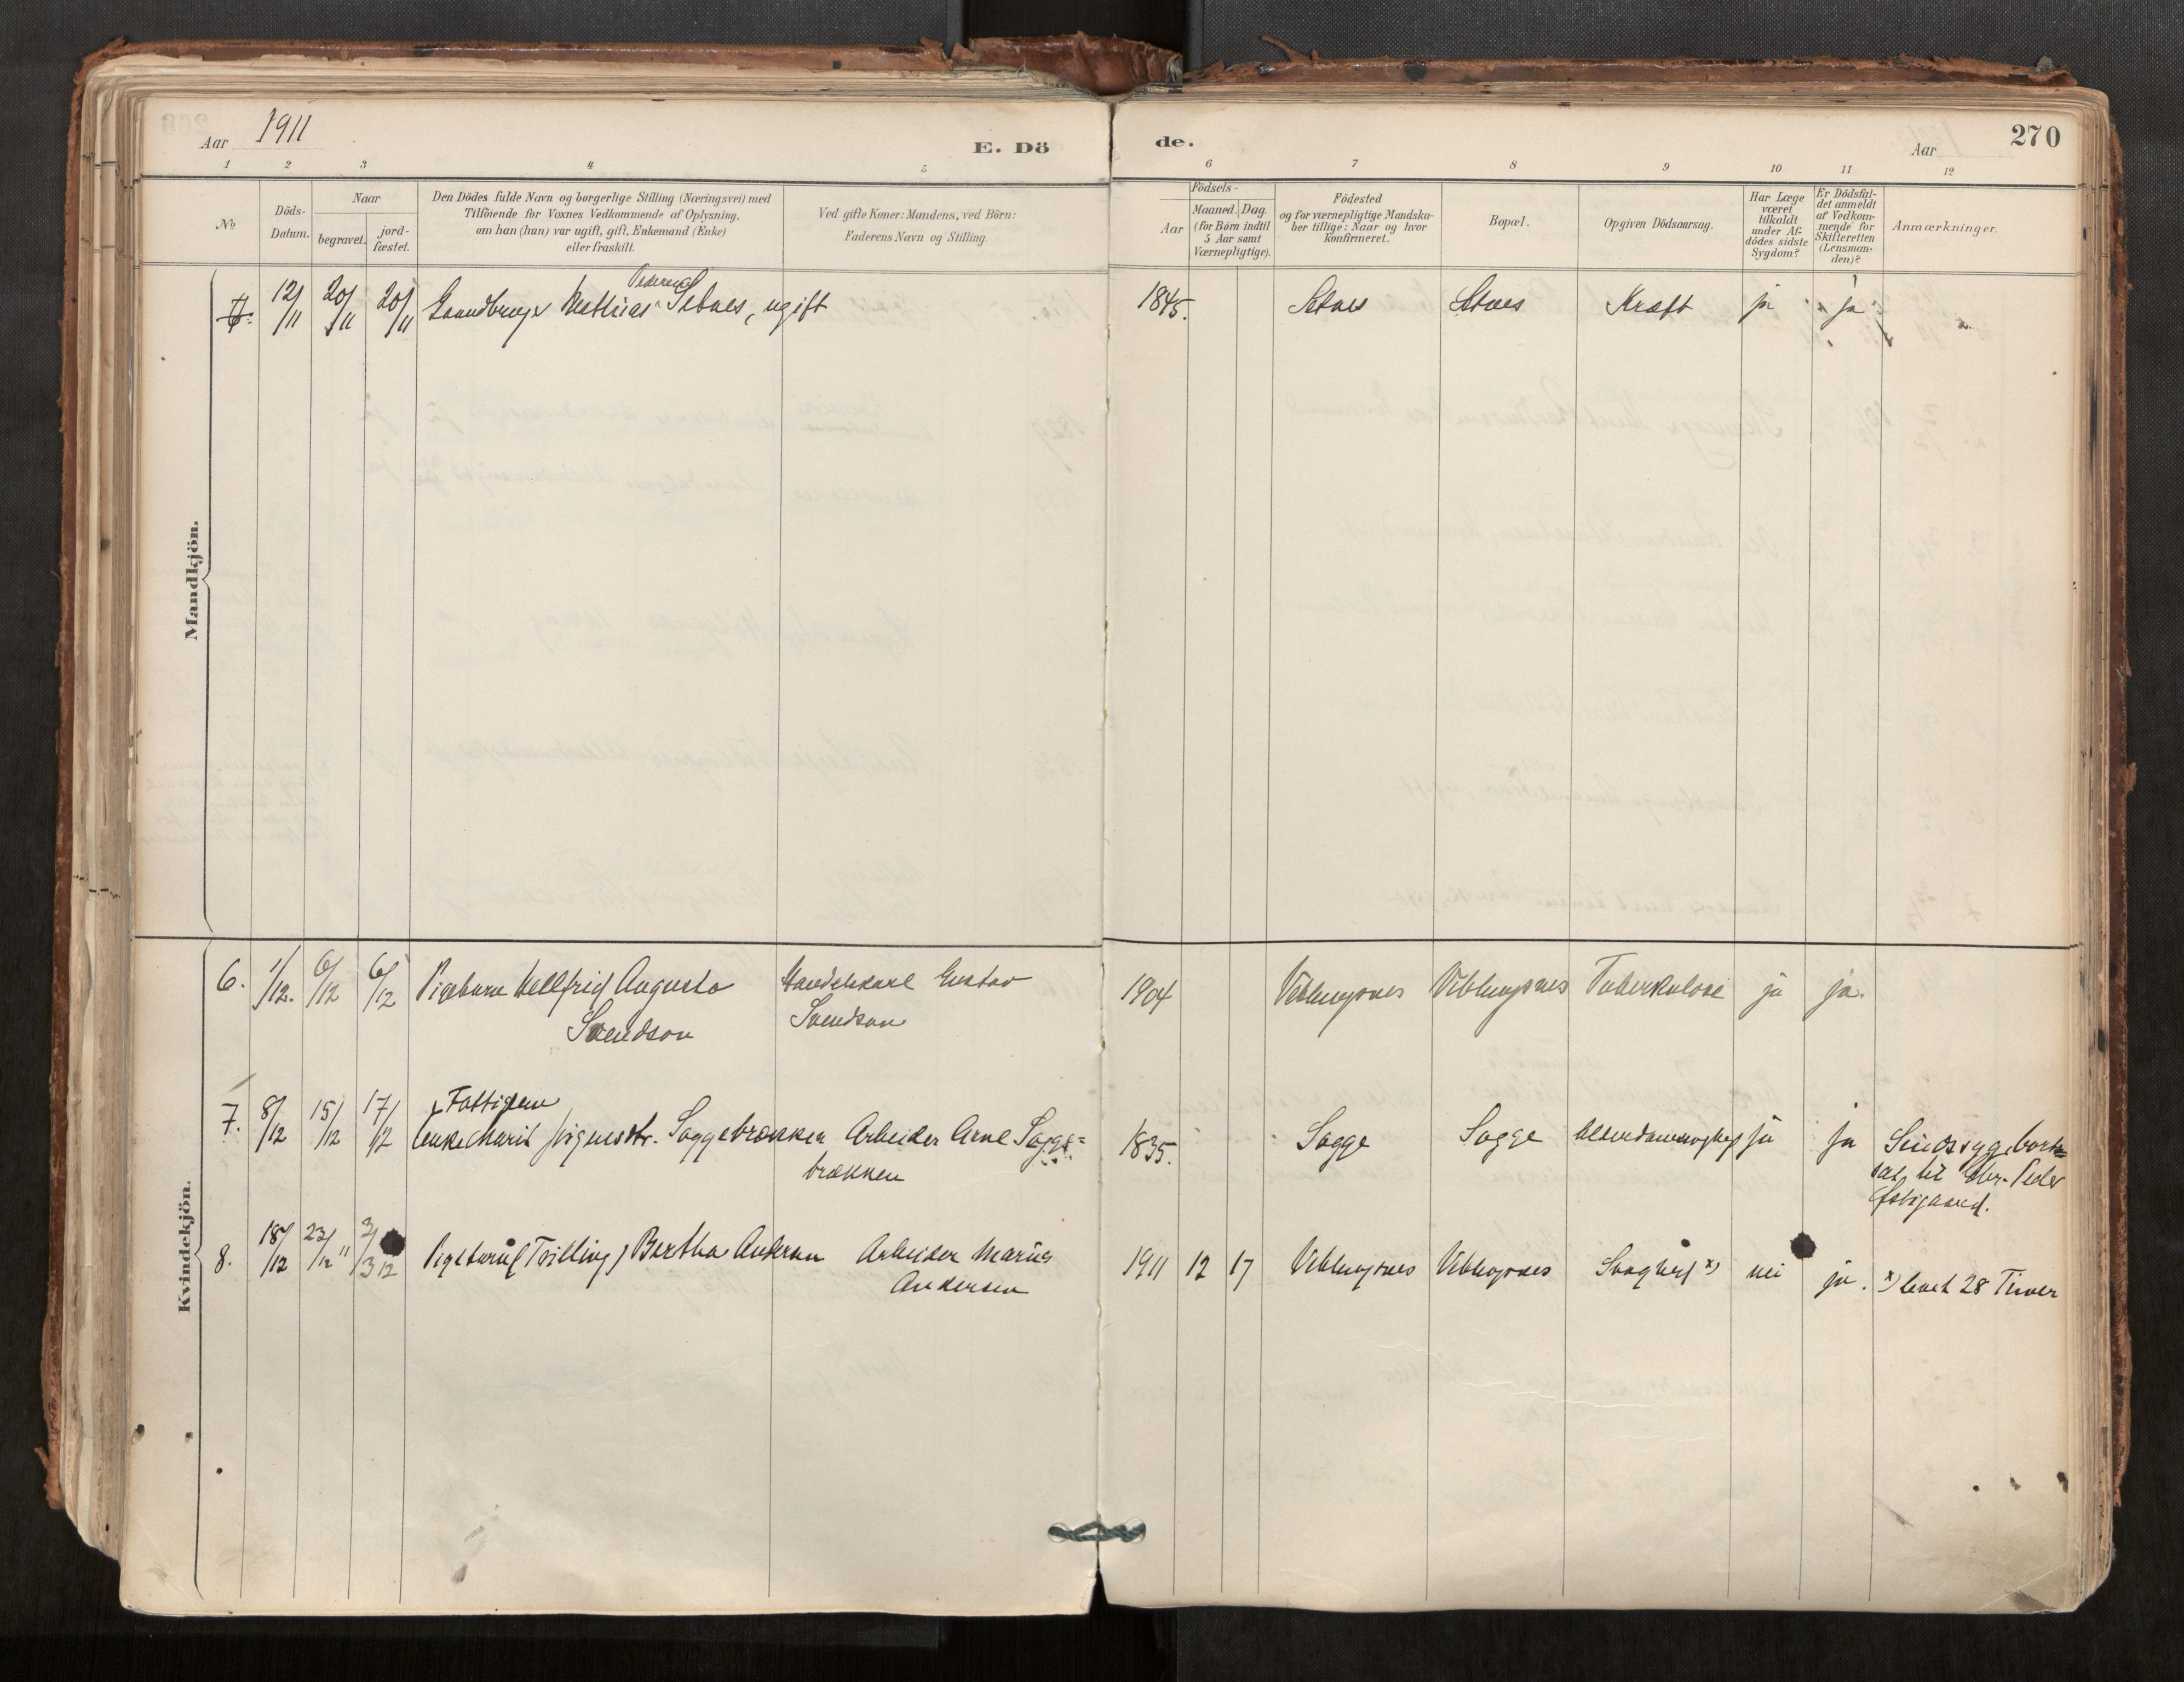 Aar 1911
E. Dö
de.
Aar
270
1 2 3 4 5 6 7 8 9 10 11 12
No
Döds-Datum.
Naar
begravet.
jord-fæstet.
Den Dödes fulde Navn og borgerlige Stilling (Næringsvei) med
Tilföiende for Voxnes Vedkommende af Oplysning,
om han (hun) var ugift, gift, Enkemand (Enke)
eller fraskilt.
Ved gifte Koner: Mandens, ved Börn:
Faderens Navn og Stilling.
Födsels-
Aar
Maaned. Dag.
(for Börn indtil
5 Aar samt
Værnepligtige).
Födested
og for værnepligtige Mandska-
ber tillige: Naar og hvor
Konfirmeret.
Bopæl.
Opgiven Dödsaarsag.
Har Læge
været
tilkaldt
under Af-
dödes sidste
Sygdom?
Er Dödsfal-
det anmeldt
af Vedkom-
mende for
Skifteretten
(Lensman-
den)?
Anmærkninger.
Mandkjön.
12/11 20/11 20/11 Gaardbruger Mathias Pedersen Setnes, ugift 1845. Setnes Setnes Kræft ja ja
Kvindekjön.
6. 1/12. 6/12 6/12 Pigebarn Hellfrid Augusta Handelskarl Gustav 1904 Veblungsnes Veblungsnes Tuberkulose ja ja.
Svendson Svendson
Fattiglem
7. 8/12 15/12 17/12 Enke Marit Jörgensdtr. Soggebrækken Arbeider Arne Sogge= 1835. Sogge Sogge Alderdomssvaghed ja ja Sindssyg, bort=
brækken sat til Gbr. Peder
8. 18/12 23/12 11 3/3 12 Pigebarn (Tvilling) Bertha Andersen Arbeider Marius 1911 12 17 Veblungsnes Veblungsnes Svaghed x) nei ja. x) levet 28 Timer
Andersen